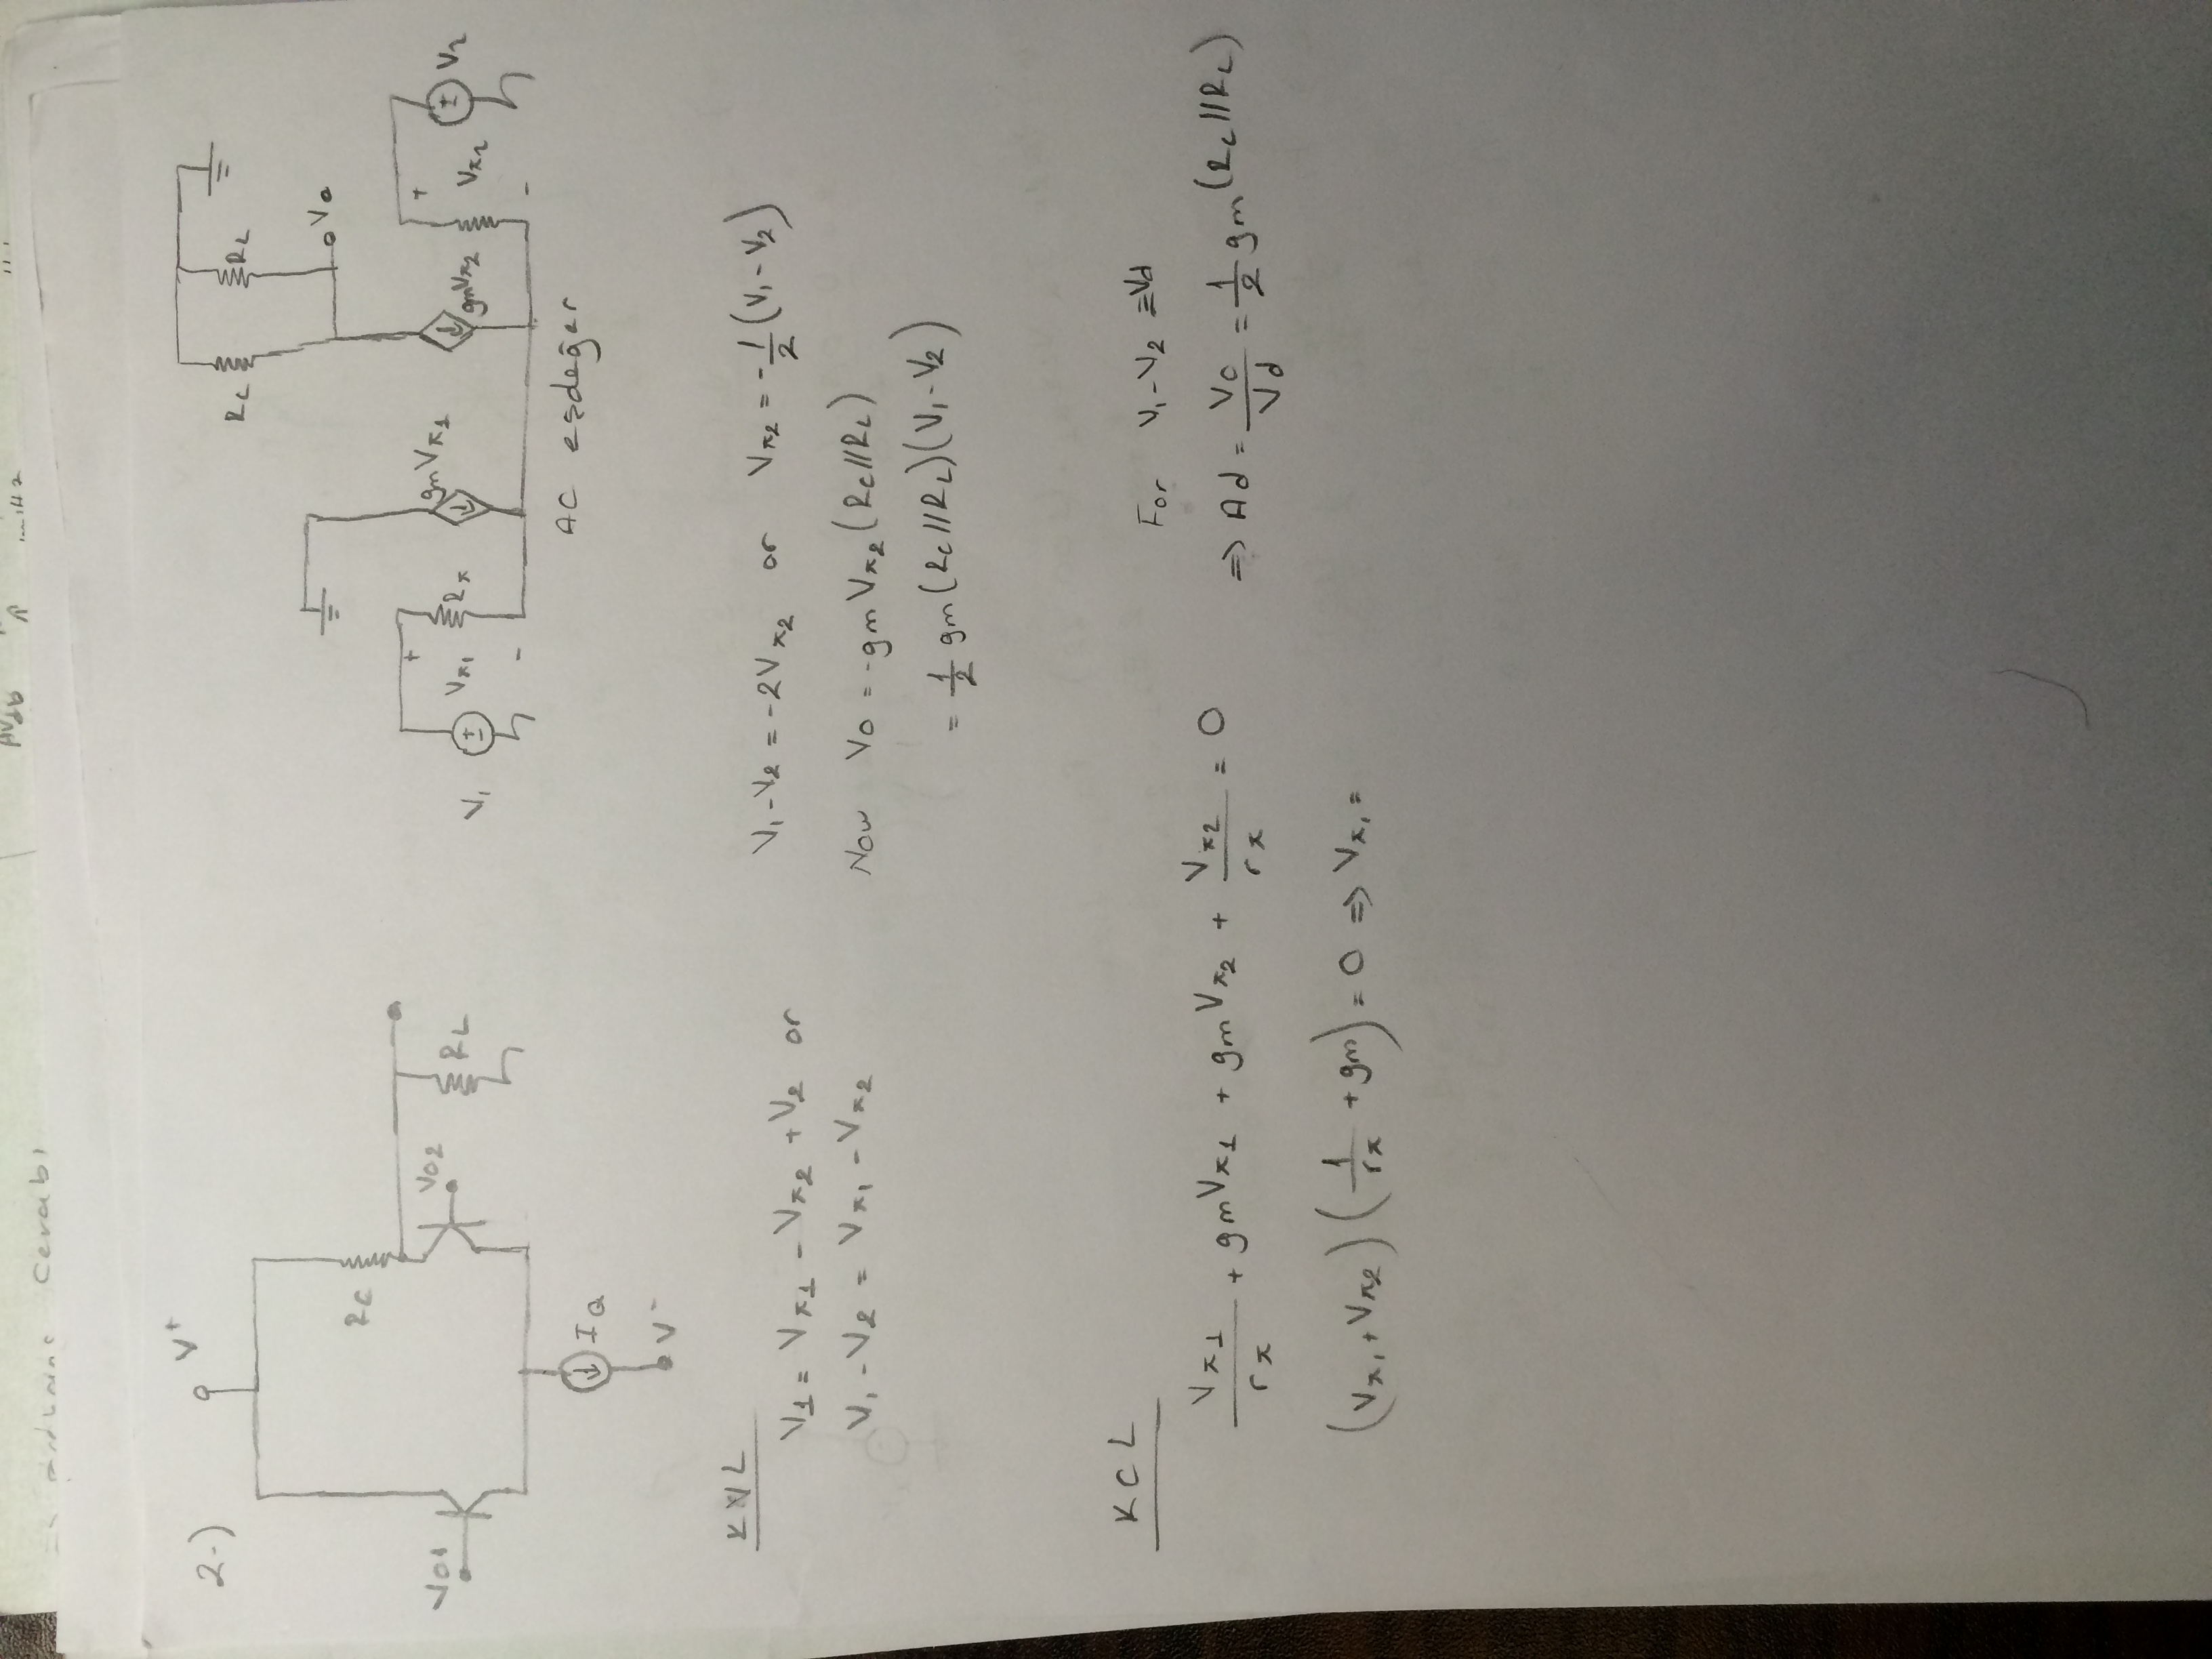 Cevabı
AVdb
2-)
V+
RC
VO1
VO2
RL
IQ
V-
RC
RL
Vo
gmVπ1
V1
Vπ1
Rπ
+
-
gmVπ2
Vπ2
V2
+
-
AC eşdeğer
KVL
V1 = Vπ1 - Vπ2 + V2 or
V1 - V2 = Vπ1 - Vπ2
V1 - V2 = -2Vπ2 or Vπ2 = -1/2 (V1 - V2)
Now VO = -gm Vπ2 (RC//RL)
= 1/2 gm (RC//RL)(V1 - V2)
KCL
Vπ1/rπ + gmVπ1 + gmVπ2 + Vπ2/rπ = 0
(Vπ1 + Vπ2)(1/rπ + gm) = 0 ⇒ Vπ1 =
For V1 - V2 ≡ Vd
⇒ Ad = VO/Vd = 1/2 gm (RC//RL)